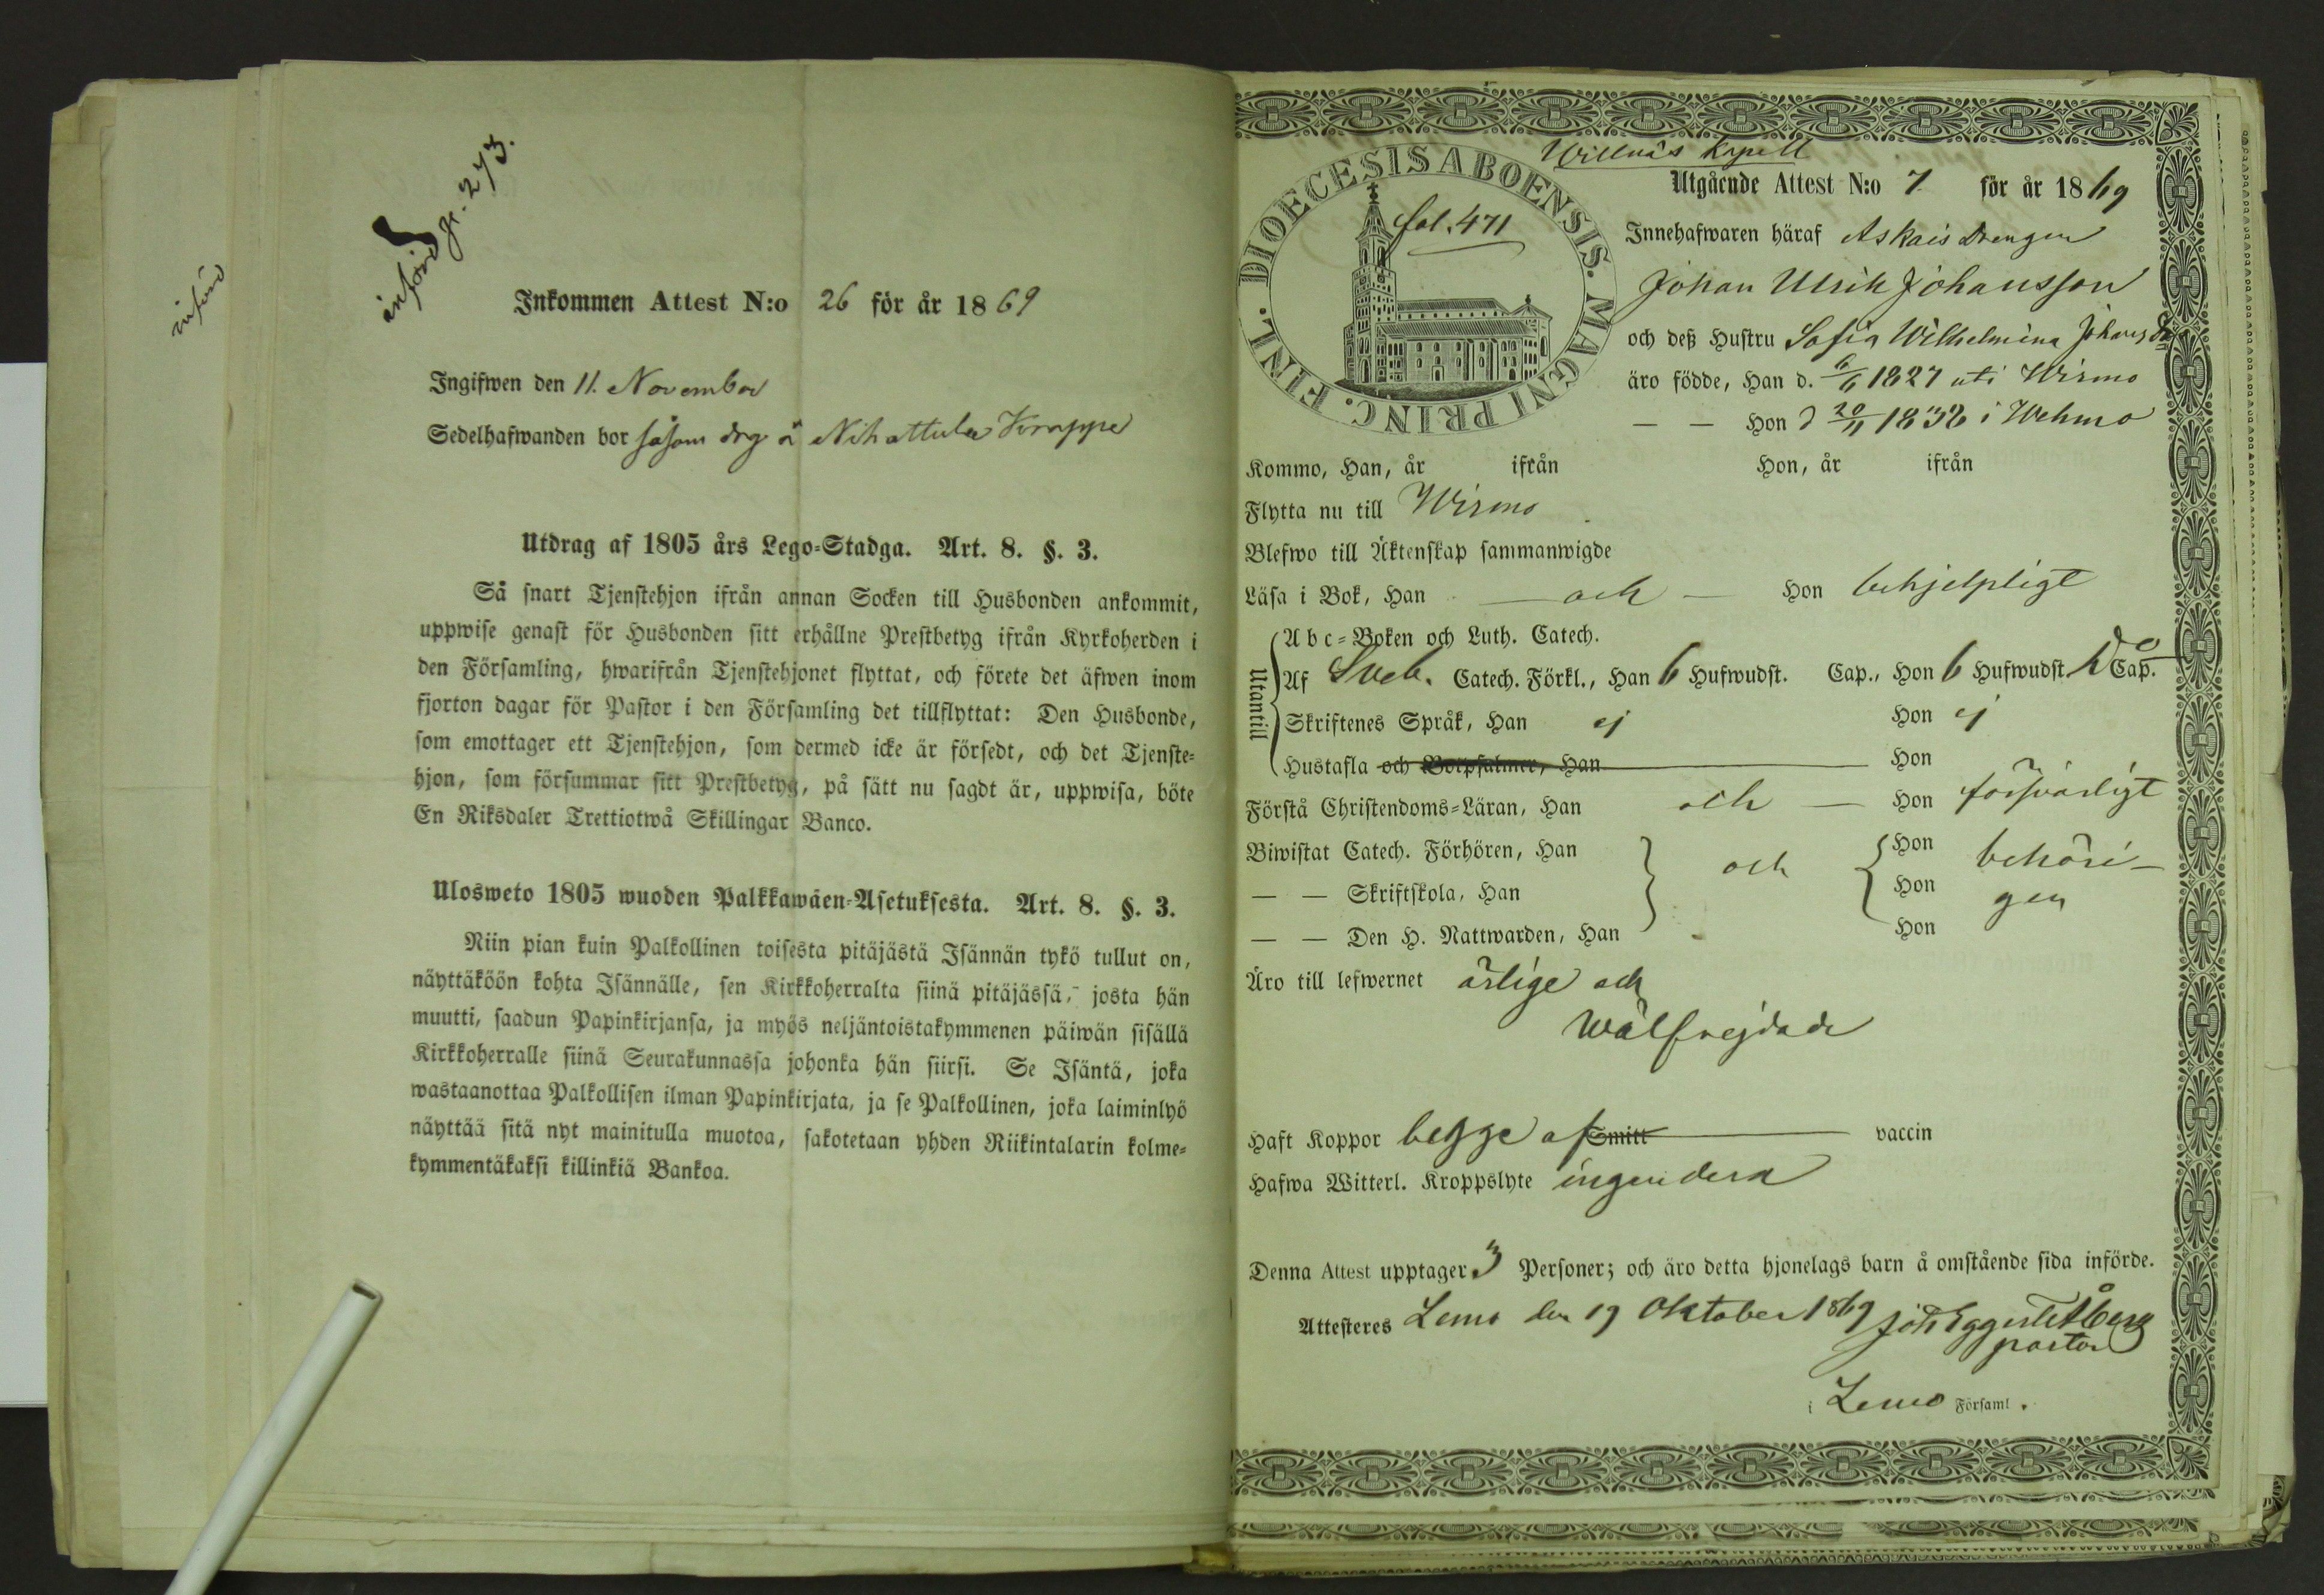 införd
införd p. 273.
Inkommen Attest N:o 26 för år 1869
Ingifwen den 11. November
Sedelhafwanden bor såsom drg å Nihattula Krappe
Utdrag af 1805 års Lego-Stadga. Art. 8. §. 3.
Så snart Tjenstehjon ifrån annan Socken till Husbonden ankommit,
uppwise genast för Husbonden sitt erhållne Prestbetyg ifrån Kyrkoherden i
den Församling, hwarifrån Tjenstehjonet flyttat, och förete det äfwen inom
fjorton dagar för Pastor i den Församling det tillflyttat: Den Husbonde,
som emottager ett Tjenstehjon, som dermed icke är försedt, och det Tjenste-
hjon, som försummar sitt Prestbetyg, på sätt nu sagdt är, uppwisa, böte
En Riksdaler Trettiotwå Skillingar Banco.
Ulosweto 1805 wuoden Palkkawäen-Asetuksesta. Art. 8. §. 3.
Niin pian kuin Palkollinen toisesta pitäjästä Isännän tykö tullut on,
näyttäköön kohta Isännälle, sen Kirkkoherralta siinä pitäjässä, josta hän
muutti, saadun Papinkirjansa, ja myös neljäntoistakymmenen päiwän sisällä
Kirkkoherralle siinä Seurakunnassa johonka hän siirsi. Se Isäntä, joka
wastaanottaa Palkollisen ilman Papinkirjata, ja se Palkollinen, joka laiminlyö
näyttää sitä nyt mainitulla muotoa, sakotetaan yhden Riikintalarin kolme-
kymmentäkaksi killinkiä Bankoa.
DIOECESIS ABOENSIS. MAGNI PRINC. FINL.
fol. 471
Willnäs Kapell
Utgående Attest N:o 7 för år 1869
Innehafwaren häraf Askais Drengen
Johan Ulrik Johansson
och deß Hustru Sofia Wilhelmina Johansdr
äro födde, Han d. 6/6 1827 uti Wirmo
— — Hon d 20/11 1836 i Wehmo
Kommo, Han, år ifrån Hon, år ifrån
Flytta nu till Wirmo
Blefwo till Äktenskap sammanwigde
Läsa i Bok, Han — och — Hon behjelpligt
Utantill
Abc-Boken och Luth. Catech.
Af Sveb. Catech. Förkl., Han 6 Hufwudst. Cap., Hon 6 Hufwudst. Cap.
Skriftenes Språk, Han ej Hon ej
Hustafla och Botpsalmer, Han Hon
Förstå Christendoms-Läran, Han och — Hon försvarligt
Biwistat Catech. Förhören, Han Hon
— — Skriftskola, Han och Hon behöri-
— — Den H. Nattwarden, Han Hon gen
Äro till lefwernet ärlige och
wälfrejdade
Haft Koppor begge af Smitt vaccin
Hafwa Witterl. Kroppslyte ingendera
Denna Attest upptager 3 Personer; och äro detta hjonelags barn å omstående sida införde.
Attesteres Lemo den 19 Oktober 1869 Joh Eggert Åberg
pastor
i Lemo Församl.